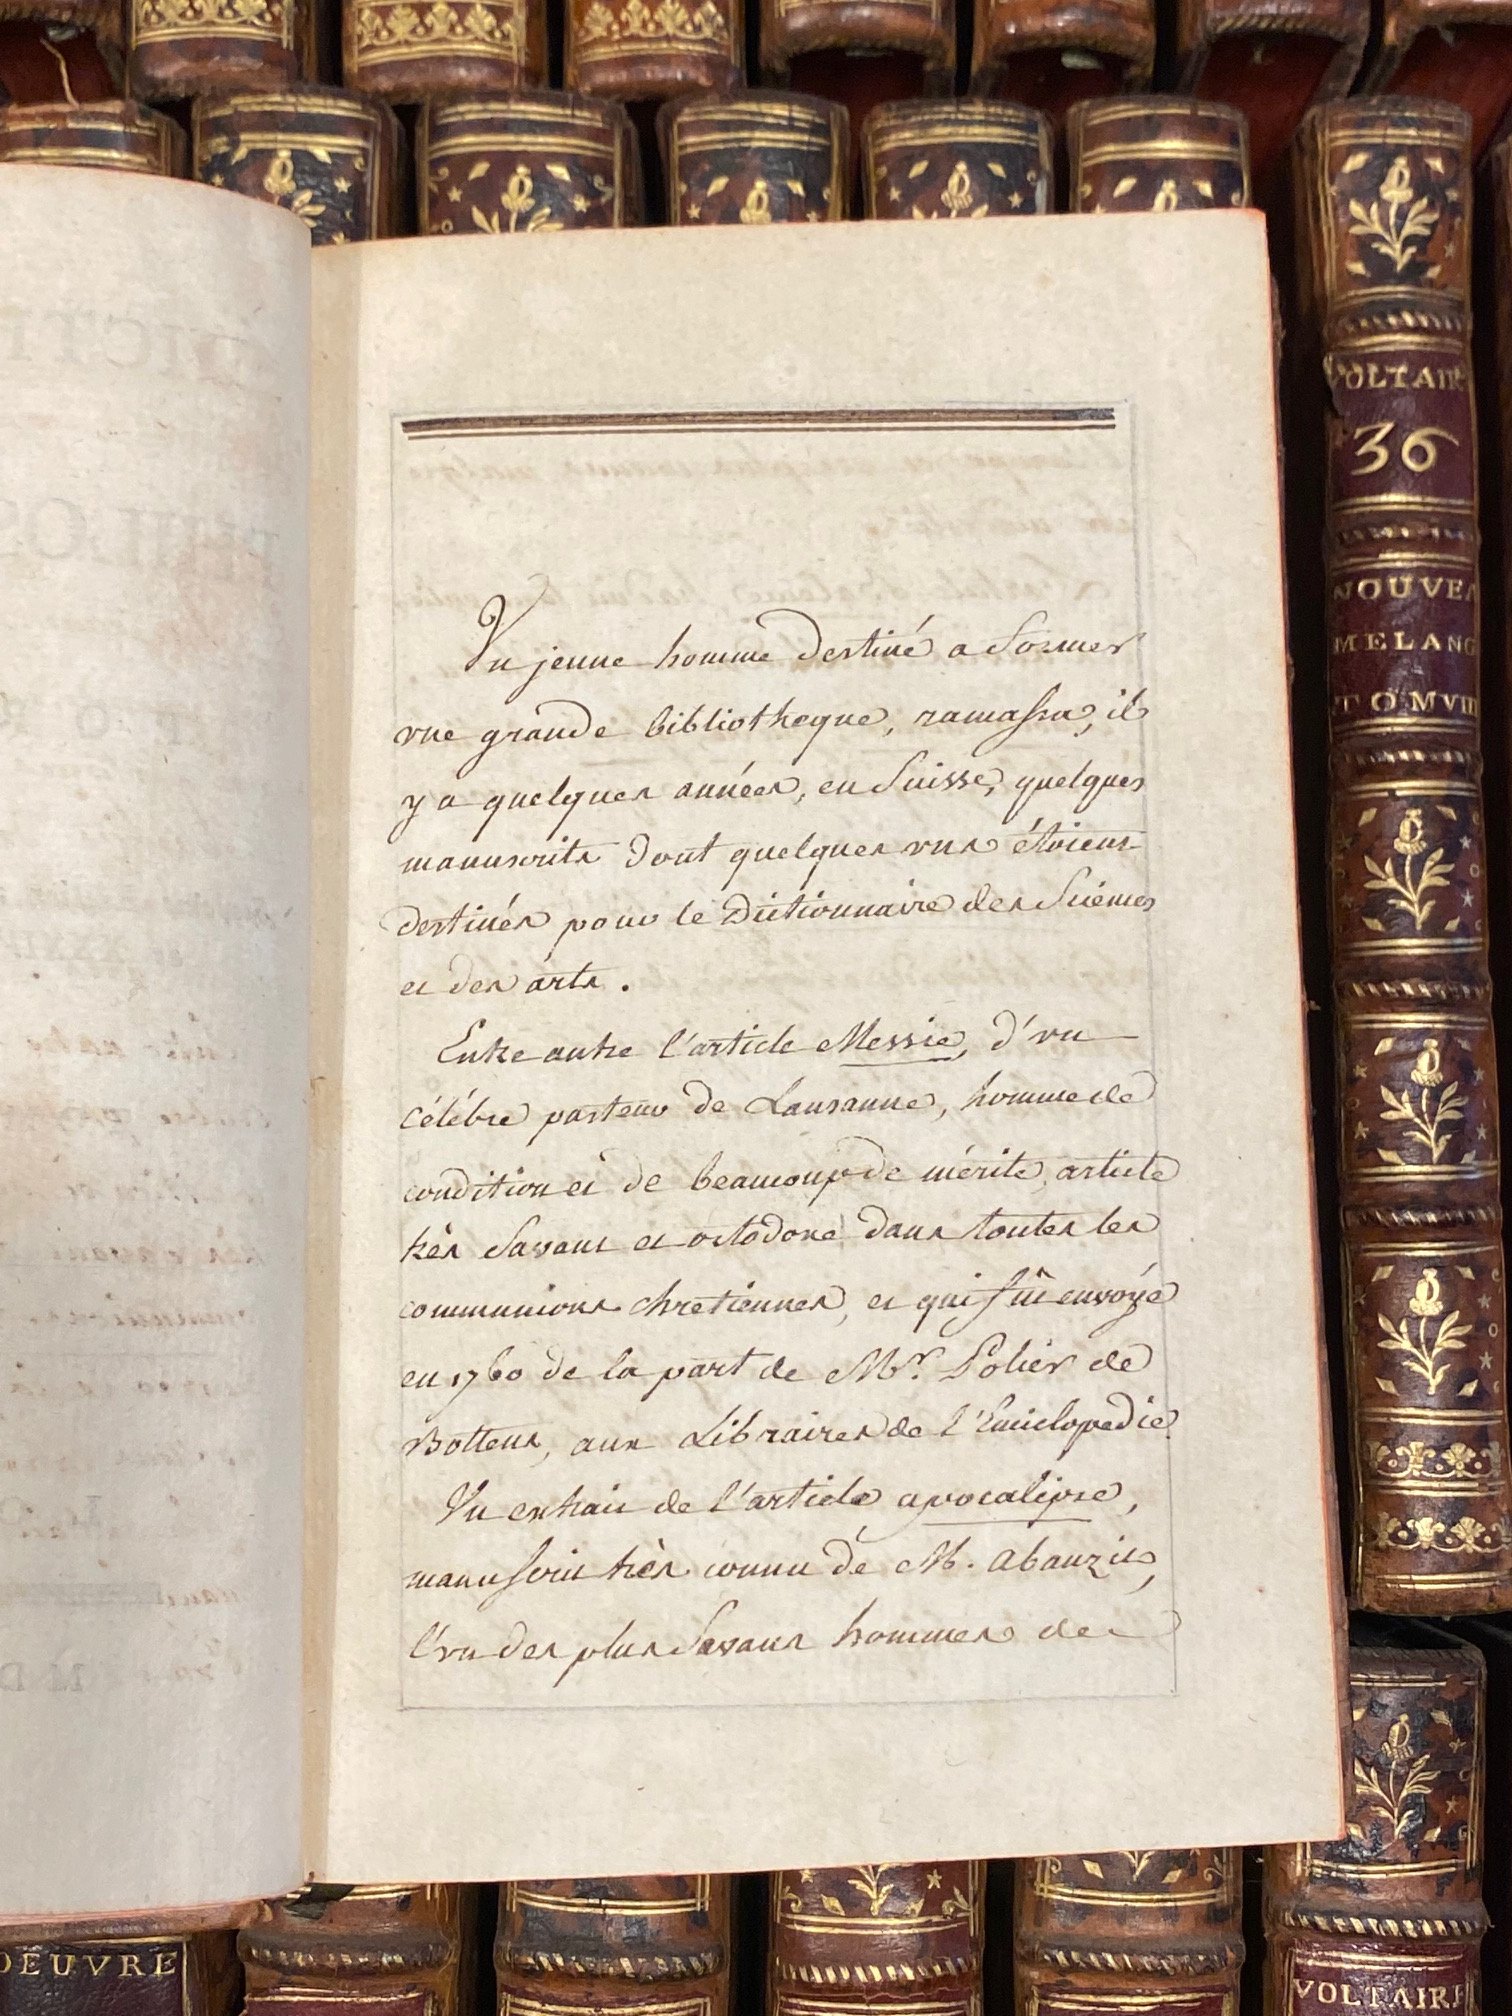 Un jeune homme destiné a former
une grande bibliotheque, ramassa, il
y a quelques années, en Suisse, quelques
manuscrits dont quelques uns étoient
destinés pour le Dictionnaire des Sciences
et des arts.
Entre autre l'article Messie, d'un
célébre pasteur de Lausanne, homme de
condition et de beaucoup de mérite, article
très Savant et ortodoxe dans toutes les
communions chretiennes, et qui fut envoyé
en 1760 de la part de Mr. Polier de
Bottens, aux Libraires de l'Enciclopedie.
Un extrait de l'article apocalipse,
manuscrit très connu de M. abauzit,
l'un des plus Savans hommes de
VOLTAIR
36
NOUVEA
MELANG
TOM VIII
OEUVRE
VOLTAIRE